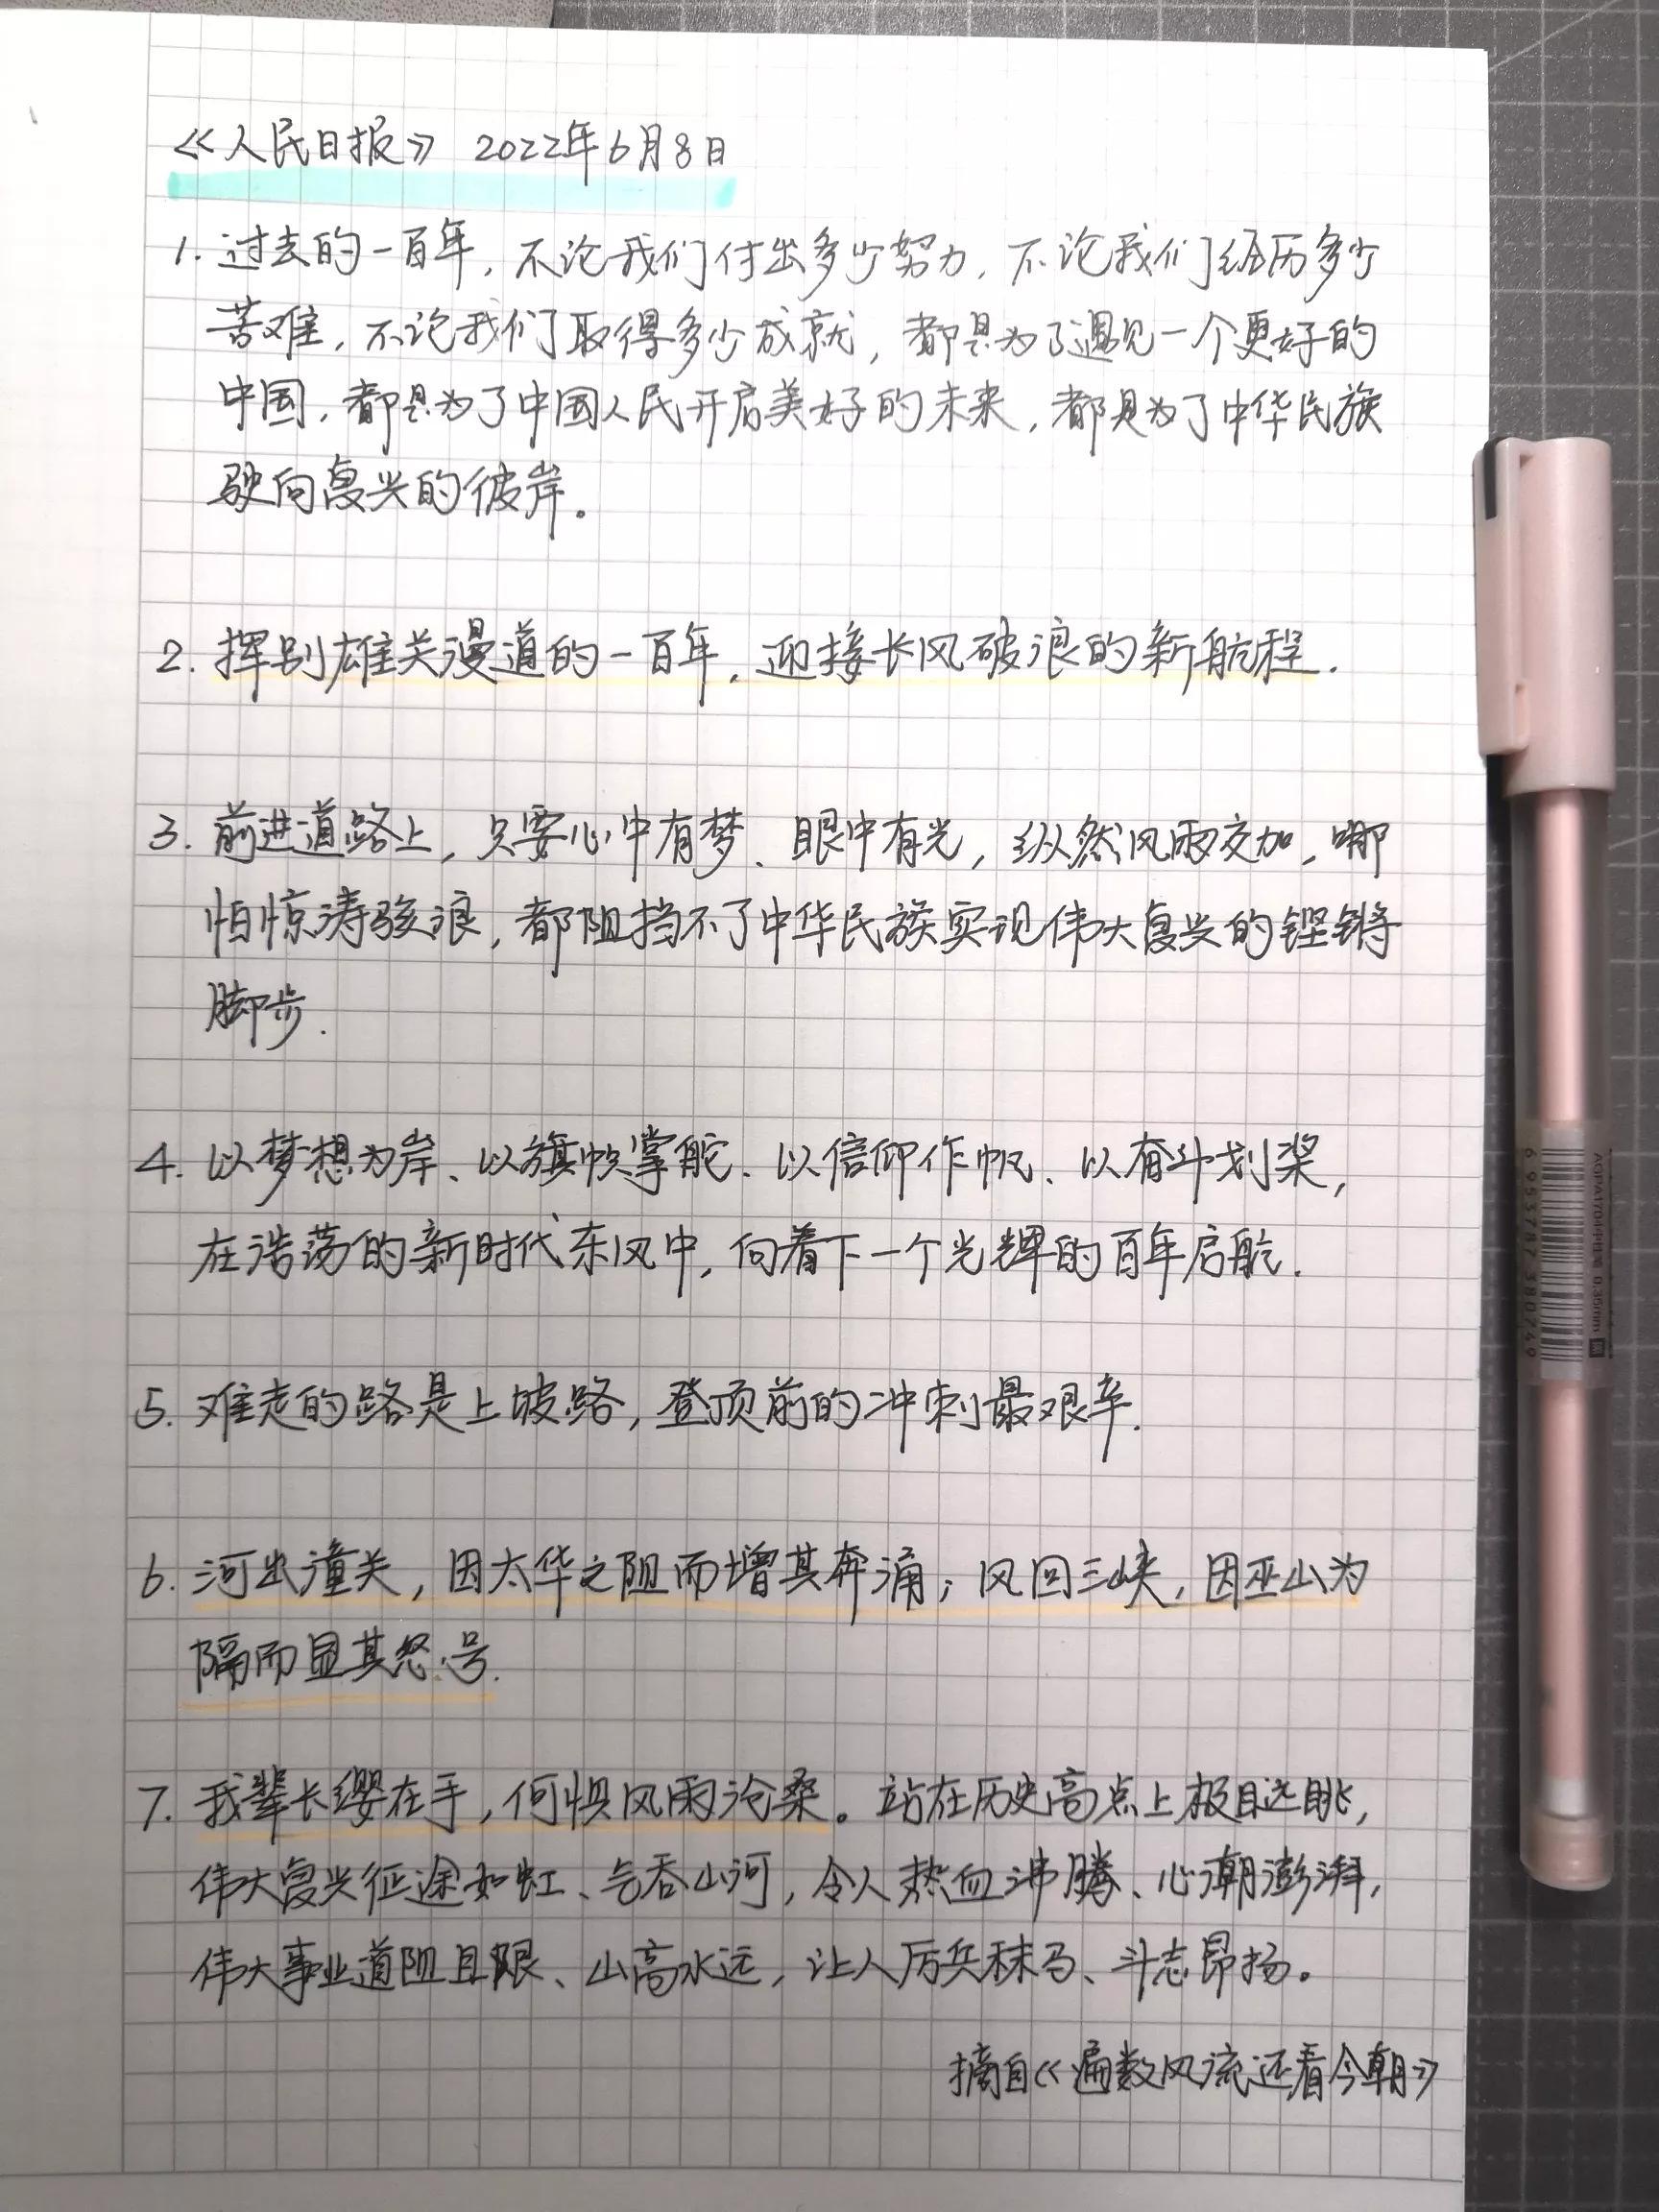 《人民日报》 2022年6月8日
1. 过去的一百年，不论我们付出多少努力，不论我们经历多少
苦难，不论我们取得多少成就，都是为了遇见一个更好的
中国，都是为了中国人民开启美好的未来，都是为了中华民族
驶向复兴的彼岸。
2. 挥别雄关漫道的一百年，迎接长风破浪的新航程.
3. 前进道路上，只要心中有梦、眼中有光，纵然风雨交加，哪
怕惊涛骇浪，都阻挡不了中华民族实现伟大复兴的铿锵
脚步.
4. 以梦想为岸、以旗帜掌舵、以信仰作帆、以奋斗划桨，
在浩荡的新时代东风中，向着下一个光辉的百年启航.
5. 难走的路是上坡路，登顶前的冲刺最艰辛.
6. 河出潼关，因太华之阻而增其奔涌；风回三峡，因巫山为
隔而显其怒号.
7. 我辈长缨在手，何惧风雨沧桑。站在历史高点上极目远眺，
伟大复兴征途如虹、气吞山河，令人热血沸腾、心潮澎湃，
伟大事业道阻且艰、山高水远，让人厉兵秣马、斗志昂扬。
摘自《遍数风流还看今朝》
AGPA1704中性笔 0.35mm
6 953787 380749